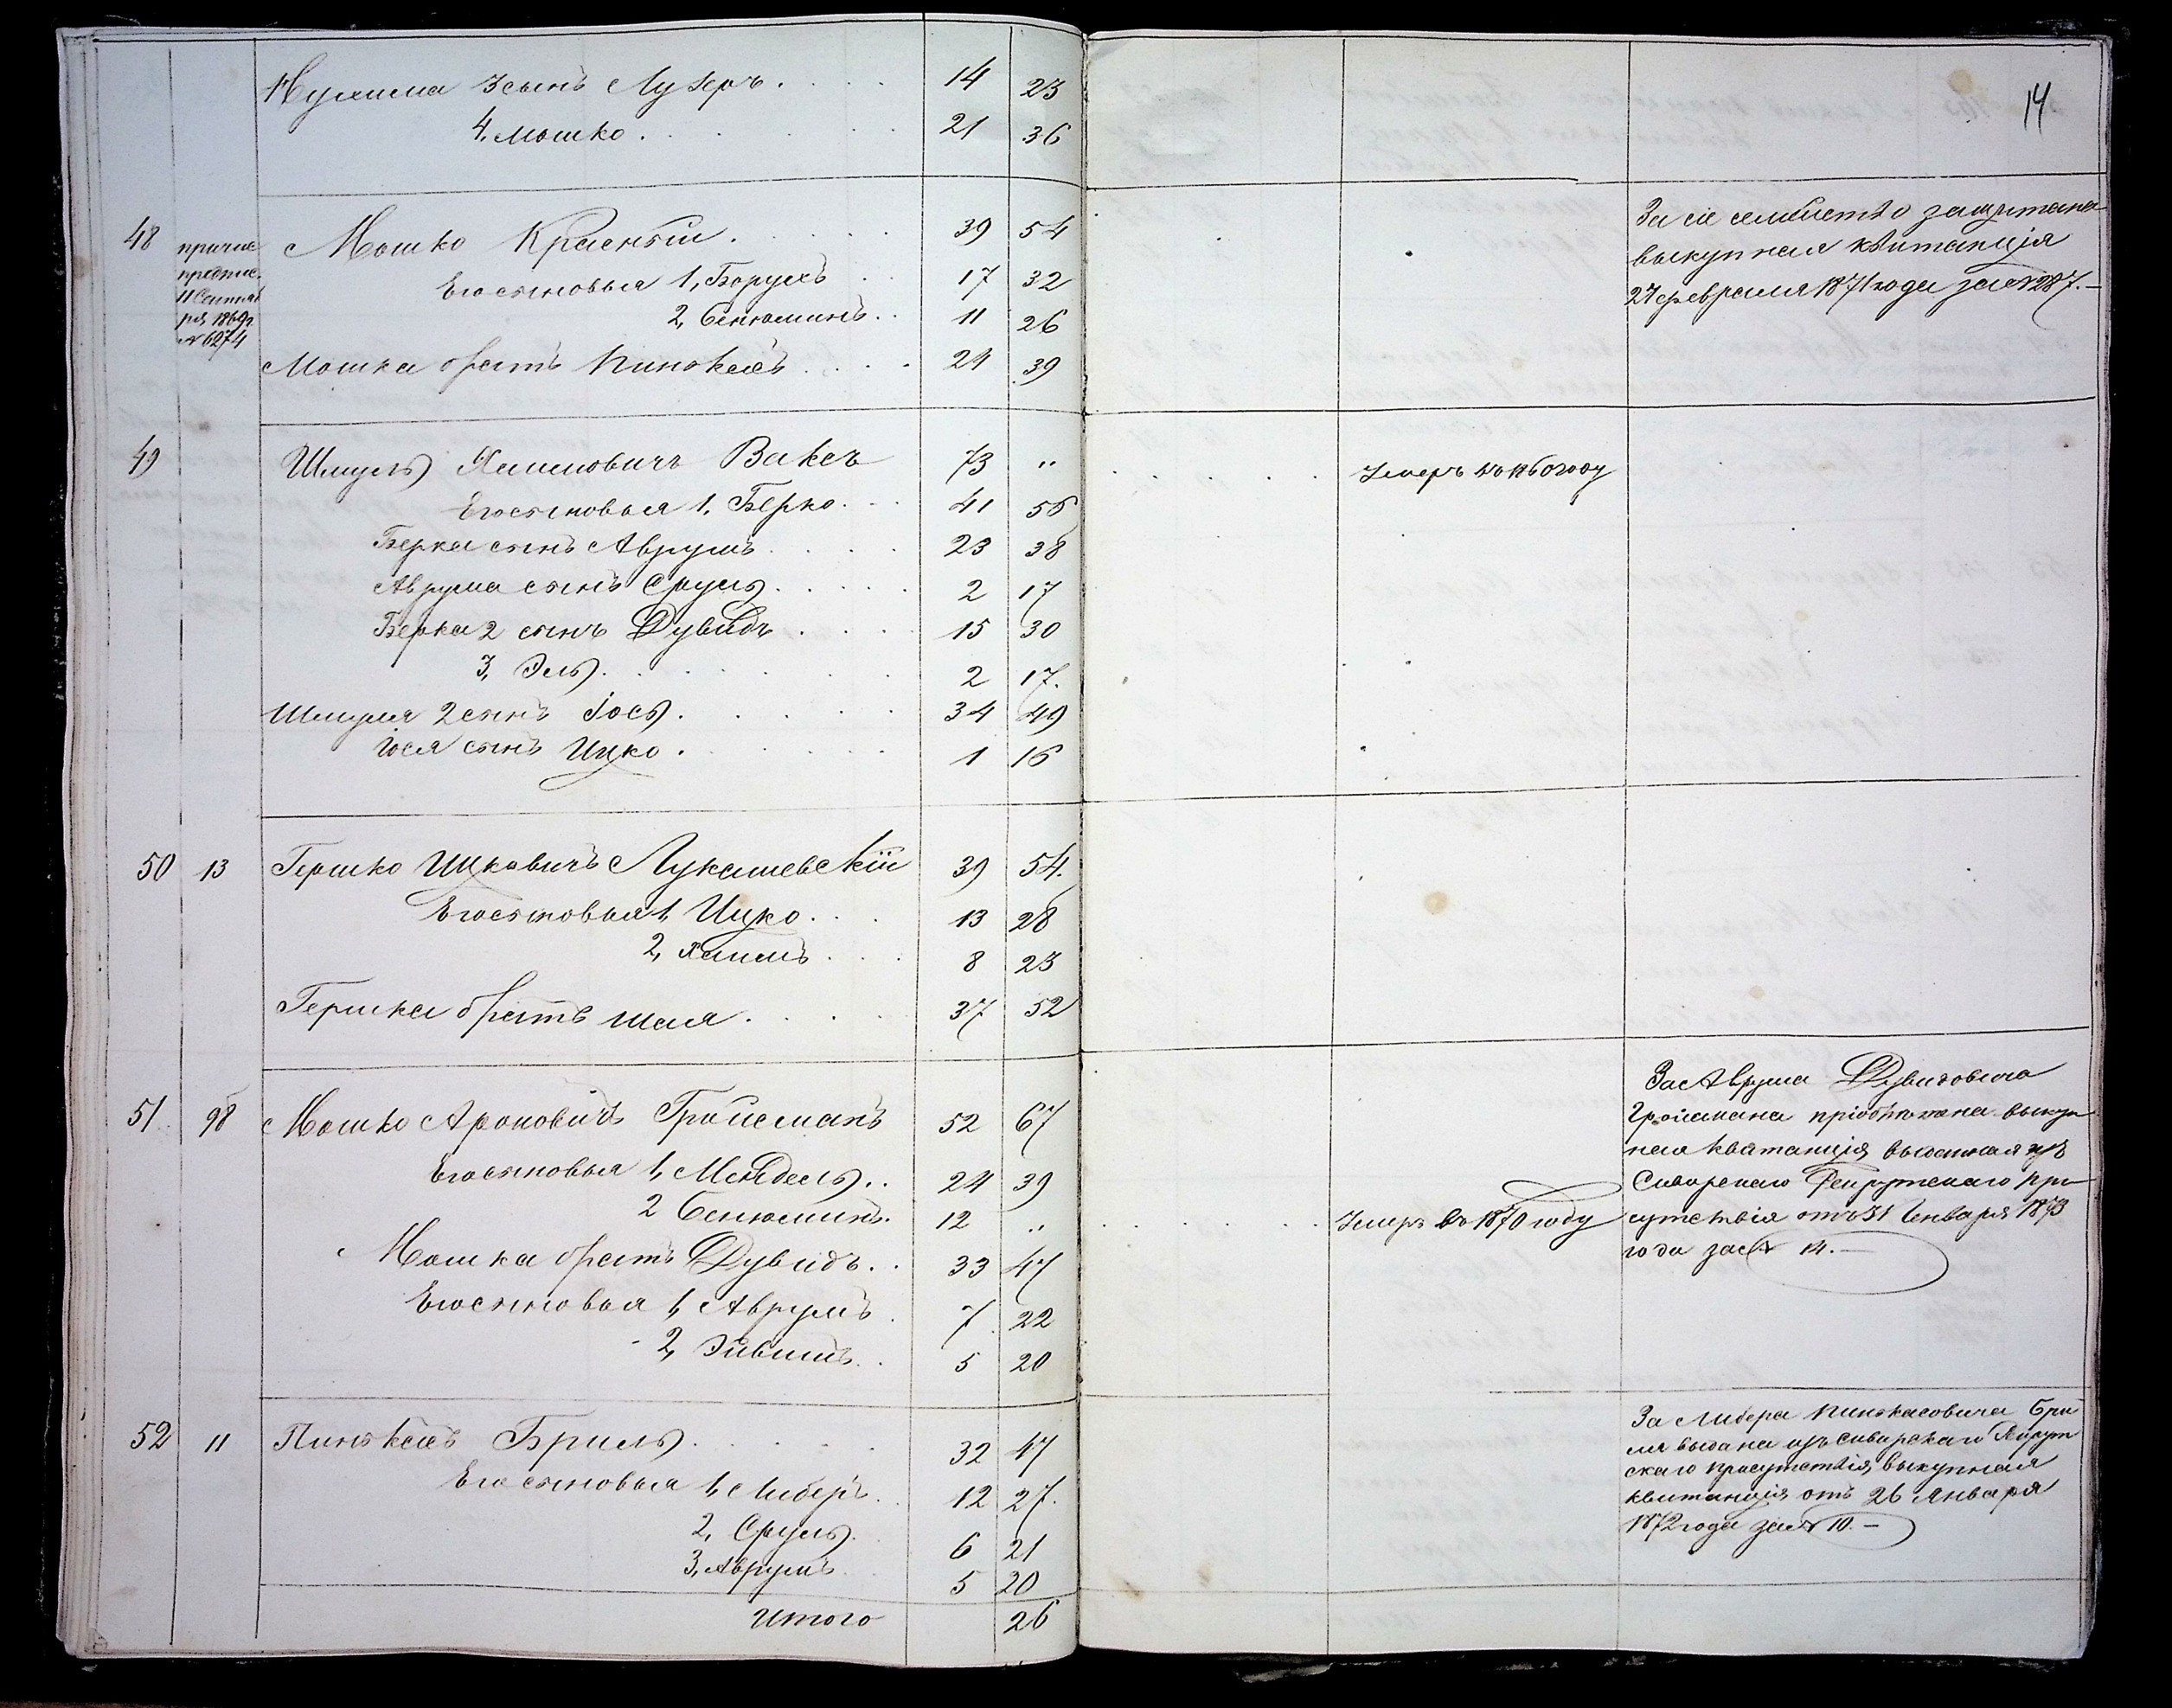 14
Нухима 3 сынъ Лузеръ . . . . 14 23
4, Мошко . . . . . . . 21 36
48 причис. Мошко Красный . . . . . 39 54
предпис.
11 Сентяб
ря 1869 г.
№ 6274
Его сыновья 1, Борухъ . . 17 32
2, Бенюминъ . . 11 26
Мошка братъ Пинхасъ . . . . 24 39
За сіе семѣйство защитана
выкупная квитанція
27 февраля 1871 года за № 287. —
49 Шмуль Хаимовичъ Ваксъ 73 " . . . . . Умеръ въ 1860 году
Его сыновья 1, Берко . . . 41 56
Берка сынъ Аврумъ . . . . 23 38
Аврума сынъ Сруль . . . . . 2 17
Берка 2 сынъ Дувидъ . . . 15 30
3, Эль . . . . . . . 2 17.
Шмуля 2 сынъ Іось . . . . . 34 49
Іося сынъ Ицко . . . . . . 1 16
50 13 Гершко Ицковичъ Лукашевскій 39 54.
Его сыновья 1, Ицко . . . 13 28
2, Хаимъ . . . 8 23
Гершка братъ Шая . . . . 37 52
51 98 Мошко Ароновичъ Гройсманъ 52 67
Его сыновья 1, Мендель . . 24 39
2 Бенюминъ . 12 " . . . . . . Умеръ въ 1870 году
Мошка братъ Дувидъ . . 33 47
Его сыновья 1, Аврумъ . 7 22
2, Эйвишъ . . 5 20
За Аврума Дувидовича
Гройсмана пріобрѣтена выкуп
ная квитанція, выданная изъ
Сквирскаго Рекрутскаго При
сутствія отъ 31 Января 1873
года за № 14. —
52 11 Пинхасъ Бриль . . . . . 32 47
Его сыновья 1, Либеръ . . 12 27.
2, Сруль . 6 21
3, Аврумъ . . 5 20
Итого 26
За Либера Пинхасовича Бри
ля выдана изъ Сквирскаго Рекрут
скаго Присутствія, выкупная
квитанція, отъ 26 Января
1872 года за № 10. —